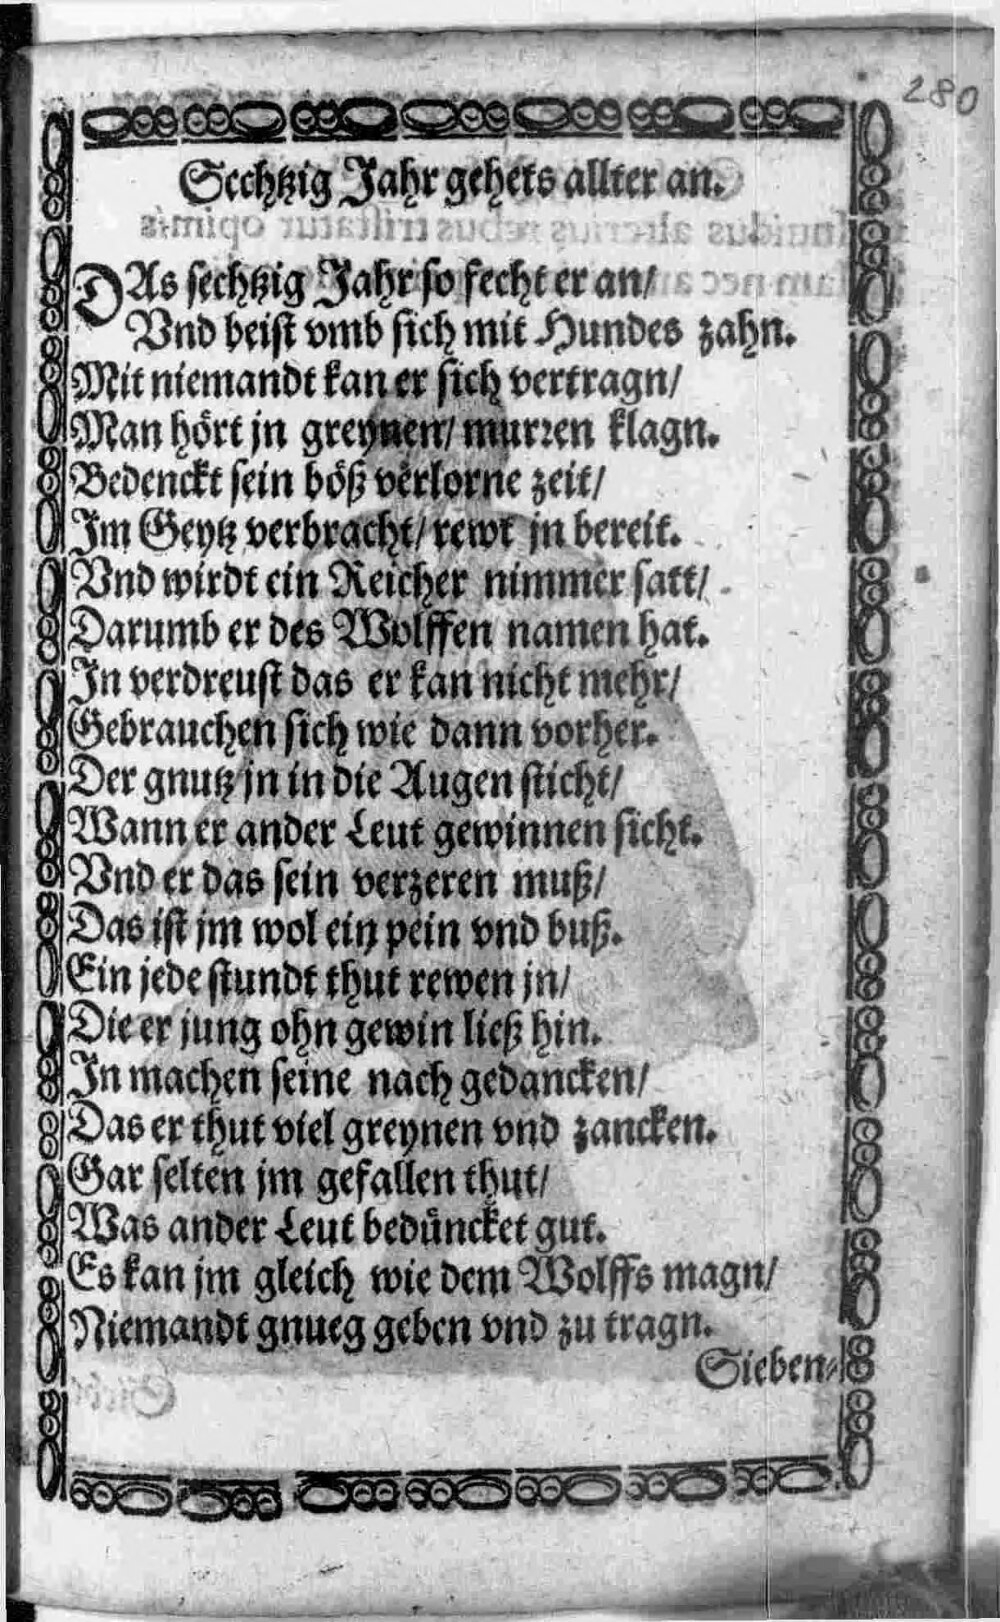 280
Sechtzig Jahr gehets allter an.
DAs sechtzig Jahr so fecht er an/
Vnd beist vmb sich mit Hundes zahn.
Mit niemandt kan er sich vertragn/
Man hört jn greynen/ murren klagn.
Bedenckt sein böß verlorne zeit/
Im Geytz verbracht/ rewt jn bereit.
Vnd wirdt ein Reicher nimmer satt/
Darumb er des Wolffen namen hat.
In verdreust das er kan nicht mehr/
Gebrauchen sich wie dann vorher.
Der gnutz jn in die Augen sticht/
Wann er ander Leut gewinnen sicht.
Vnd er das sein verzeren muß/
Das ist jm wol ein pein vnd buß.
Ein jede stundt thut rewen jn/
Die er jung ohn gewin ließ hin.
In machen seine nach gedancken/
Das er thut viel greynen vnd zancken.
Gar selten jm gefallen thut/
Was ander Leut bedüncket gut.
Es kan jm gleich wie dem Wolffs magn/
Niemandt gnueg geben vnd zu tragn.
Sieben-